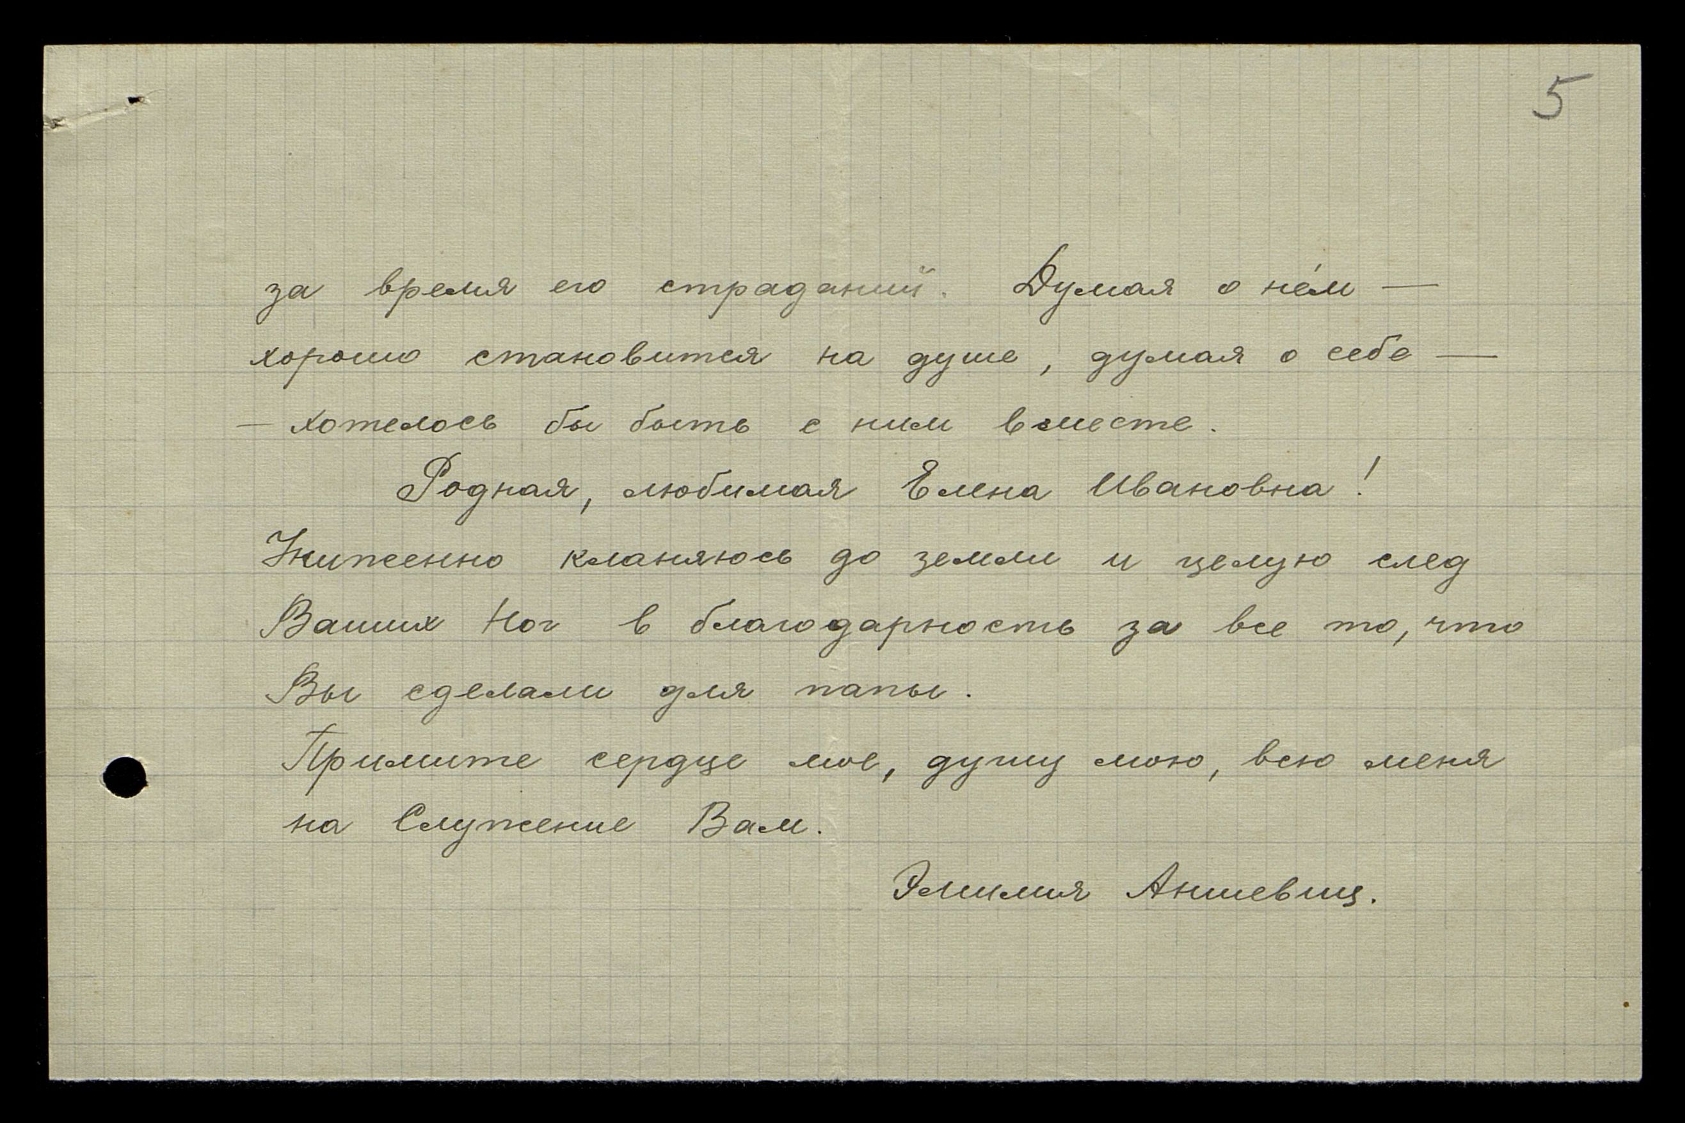 5
за время его страданий. Думая о нём —
хорошо становится на душе, думая о себе —
— хотелось бы быть с ним вместе.
Родная, любимая Елена Ивановна!
Униженно кланяюсь до земли и целую след
Ваших Ног в благодарность за все то, что
Вы сделали для папы.
Примите сердце мое, душу мою, всю меня
на Служение Вам.
Эмилия Аншевиц.